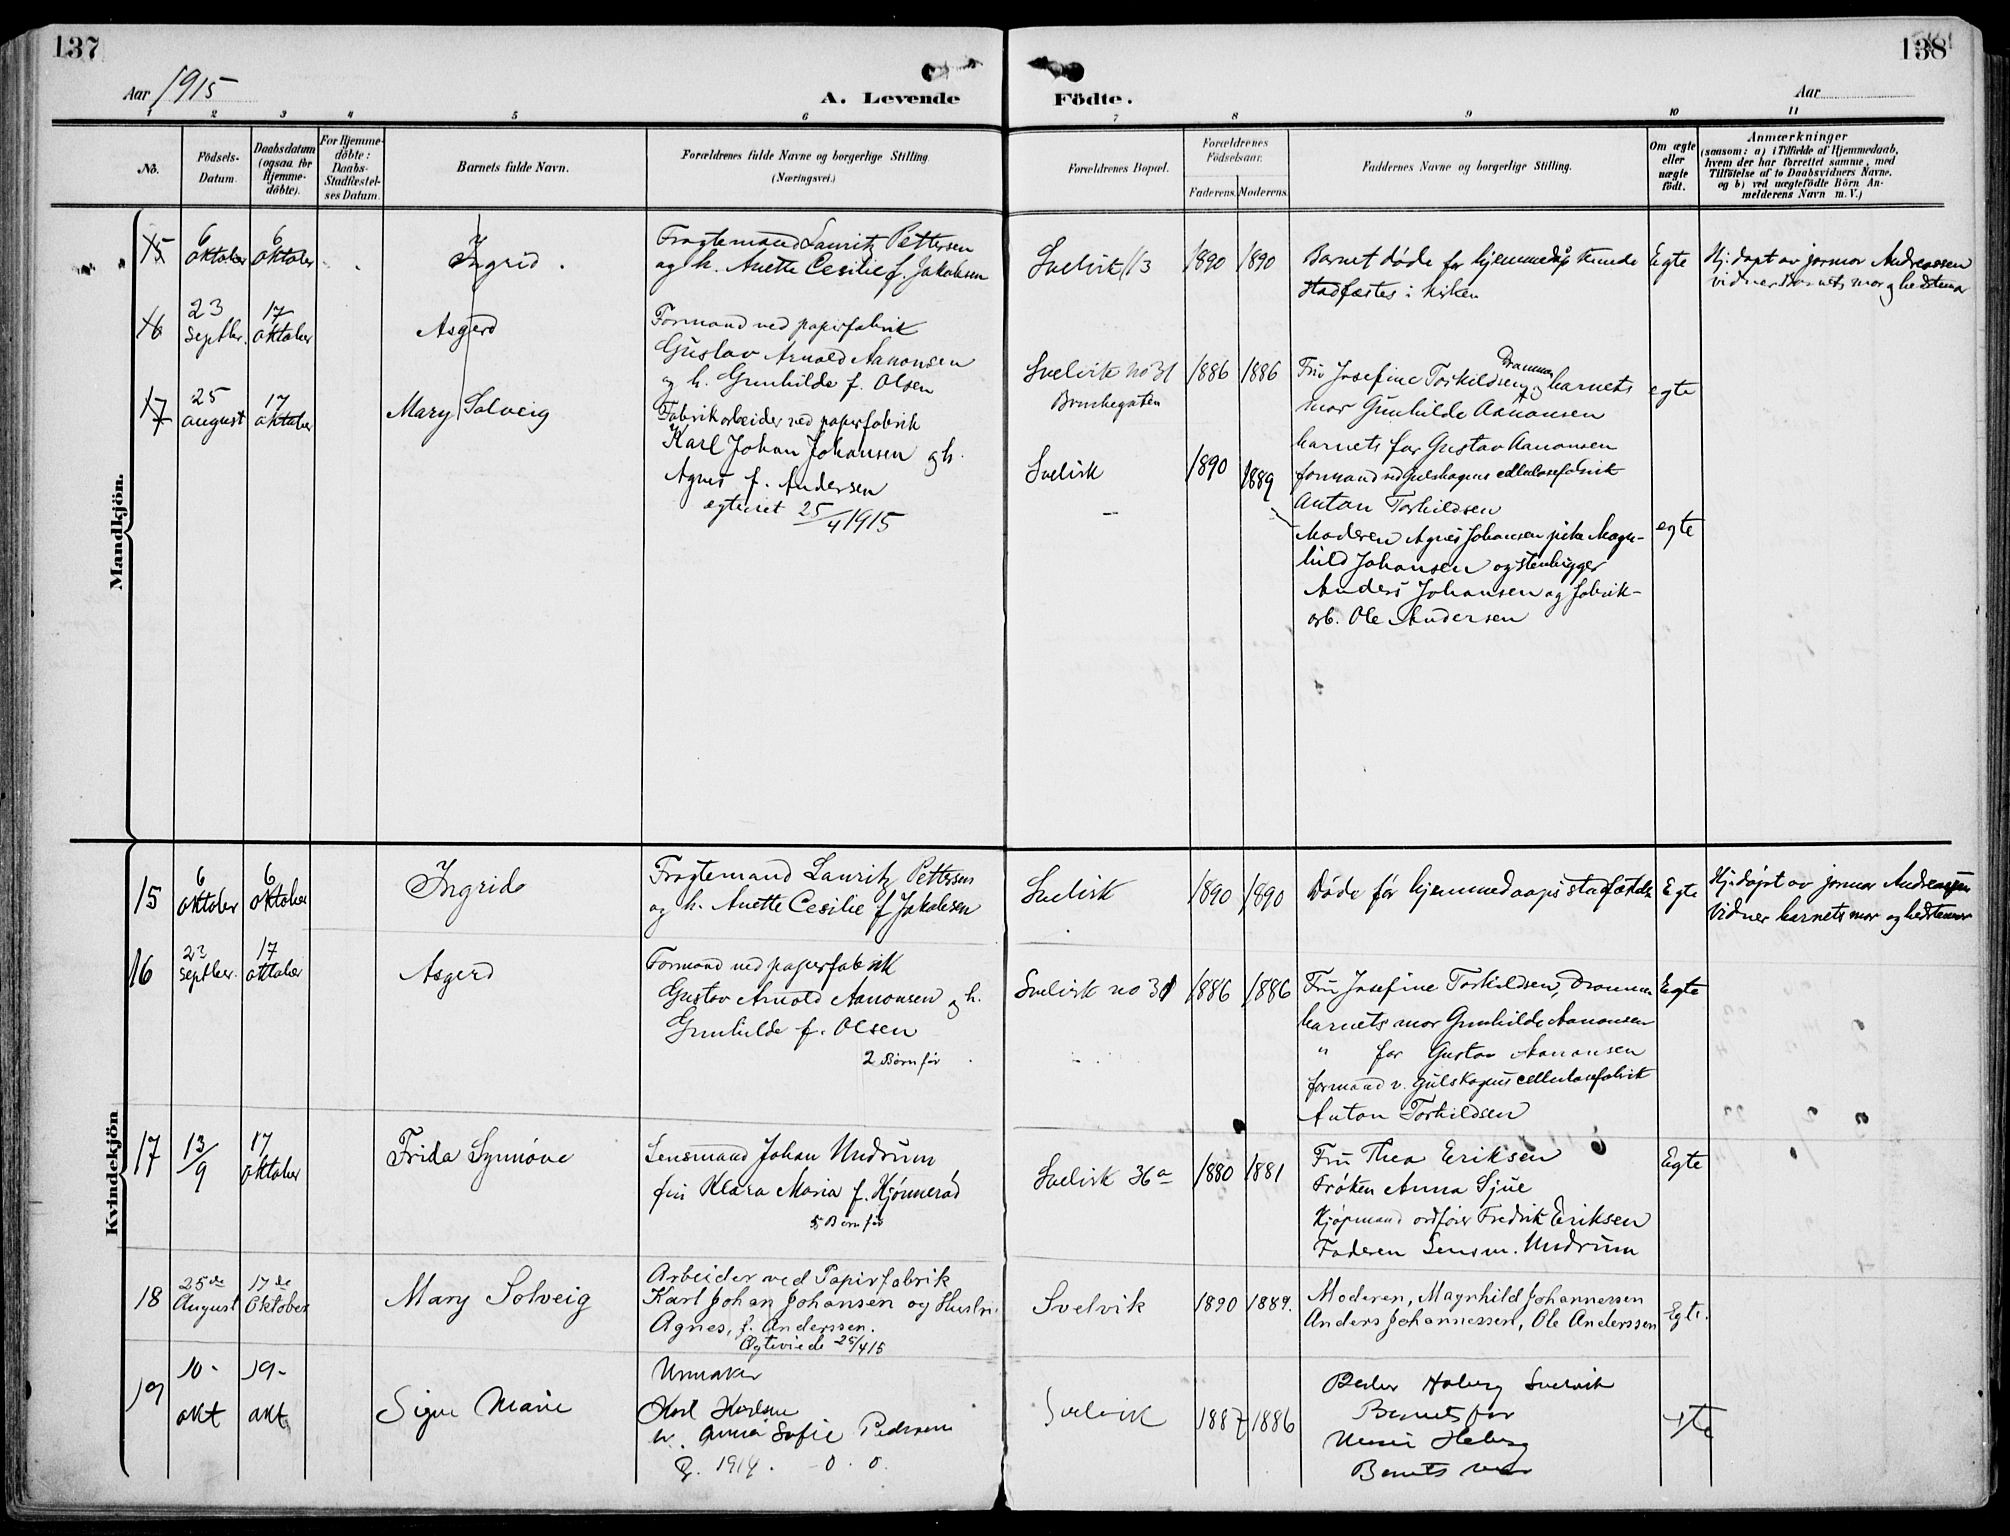 137
138
Aar 1915
A. Levende Födte.
Aar
1 2 3 4 5 6 7 8 9 10 11
No.
Födsels-Datum.
Daabsdatum (ogsaa for Hjemmedöbte).
For Hjemmedöbte: Daabs-Stadfæstelses Datum.
Barnets fulde Navn.
Forældrenes fulde Navne og borgerlige Stilling
(Næringsvei.)
Forældrenes Bopæl.
Forældrenes Födselsaar.
Faderens. Moderens.
Faddernes Navne og borgerlige Stilling.
Om ægte eller uægte födt.
Anmærkninger
(saasom: a) i Tilfælde af Hjemmedaab,
hvem der har forrettet samme, med
Tilföielse af to Daabsvidners Navne,
og b) ved uægtefödte Börn An-
melderens Navn m. V.)
Mandkjön.
15
6 oktober
6 oktober
Ingrid
Fragtemand Lauritz Pettersen
og h. Anette Cecilie f. Jakobsen
Svelvik 113
1890 1890
Barnet døde før hjemmedåp kunde
stadfæstes i kirken
Egte
Hj. døpt av jormor Andreassen
vidner barnets mor og bedstemor
16
23 septbr.
17 oktober
Asgerd
Formand ved papirfabrik
Gustav Arnold Aanonsen
og h. Gunhilde f. Olsen
Svelvik no 31
1886 1886
Fru Josefine Torkildsen Drammen og barnets
mor Gunhilde Aanonsen
barnets far Gustav Aanonsen
formand ved Gulskogens cellulosefabrik
Anton Torkildsen
egte
17
25 august
17 oktober
Mary Solveig
Fabrikarbeider ved papirfabrik
Karl Johan Johansen og h.
Agnes f. Andersen
egteviet 25/4 1915
Svelvik
1890 1889
Moderen Agnes Johansen pike Magn-
hild Johansen og stenhugger
Anders Johansen og fabrik-
arb. Ole Andersen
egte
Kvindekjön
15
6 oktober
6 oktober
Ingrid
Fragtemand Lauritz Pettersen
og h. Anette Cesilie f Jakobsen
Svelvik
1890 1890
Døde før hjemmedaaps stadfæstelse
Egte
Hj. døpt av jormor Andreassen
Vidner barnets mor og bedstemor
16
23 septber.
17 oktober
Asgerd
Formand ved papirfabrik
Gustav Arnold Aanonsen og h.
Gunhilde f. Olsen
2 Børn før
Svelvik no 31
1886 1886
Fru Josefine Torkildsen, Drammen
barnets mor Gunhilde Aanonsen
" far Gustav Aanonsen
formand v. Gulskogens cellulosefabrik
Anton Torkildsen
Egte
17
13/9
17 oktober
Frida Synnøve
Lensmand Johan Undrum
fru Klara Maria f. Hjønnerød
5 Børn før
Svelvik 36a
1880 1881
Fru Thea Eriksen
Frøken Anna Sjue
Kjøpmand ordfører Fredrik Eriksen
Faderen Lensm. Undrum
Egte
18
25de August
17de Oktober
Mary Solveig
Arbeider ved Papirfabrik
Karl Johan Johansen og Hustru
Agnes, f. Anderssen.
Ægteviede 25/4 15
Svelvik
1890 1889.
Moderen, Magnhild Johannessen
Anders Johannessen, Ole Anderssen
Egte.
19
10- okt
19- okt
Signe Marie
Urmaker
Karl Karlsen
h. Anna Sofie Pedersen
g. 1914. - 0. 0.
Svelvik
1887 1886
Peder Høberg Svelvik
Barnets far
Høberg
Barnets mor